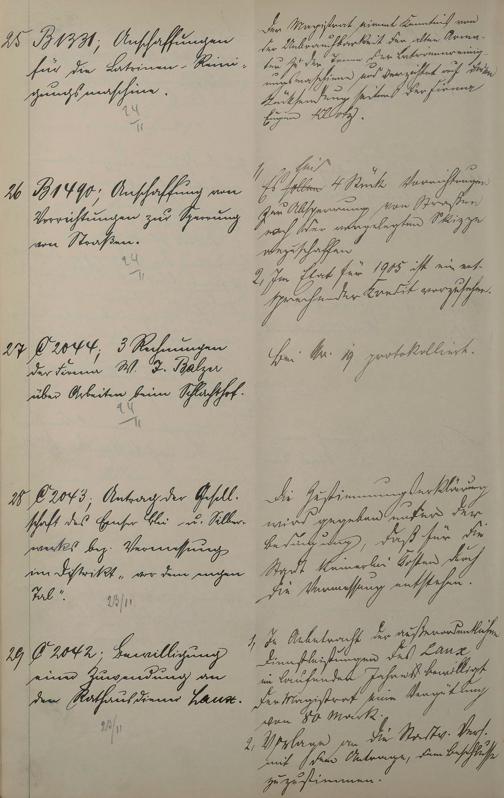 25 B1331; Anschaffungen
für die Latrinen-Reini-
gungsmaschine.
24/11
Der Magistrat nimmt Kenntnis von
der Unbrauchbarkeit der alten
der Latrinenreini-
gungsmaschine und verzichtet auf deren
Rücksendung seitens der Firma
Eugen Klotz.
26 B1490; Anschaffung von
Vorrichtungen zur Sperrung
von Straßen.
24/11
1, Es sind 4 Stück Vorrichtungen
zur Absperrung von Straßen
nach der vorgelegten Skizze
anzuschaffen
2, Im Etat für 1905 ist ein ent-
sprechender Kredit vorzusehen.
27 C2044; 3 Rechnungen
der Firma W. J. Balzer
über Arbeiten beim Schlachthof.
24/11
Bei Nr. 19 protokolliert.
28 C2043; Antrag der Gesell-
schaft des Emser Blei- u. Silber-
werks bez. Vermessung
im Distrikt "vor dem engen
Tal".
23/11
Die Zustimmungserklärung
wird gegeben unter der
Bedingung, daß für die
Stadt keinerlei Kosten durch
die Vermessung entstehen.
29 C2042; Bewilligung
einer Zuwendung an
den Rathausdiener Laux.
23/11
1, In Anbetracht der außerordentlichen
Dienstleistungen des Laux
im laufenden Jahre bewilligt
der Magistrat eine Vergütung
von 80 Mark.
2, Vorlage an die Stadtv. Vers.
mit dem Antrage, dem Beschlusse
zuzustimmen.